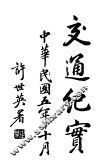 交通紀實
中華民國五年十月
許世英署